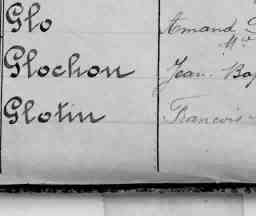 Glo Amand
Glochon Jean Bap
Glotin Francois